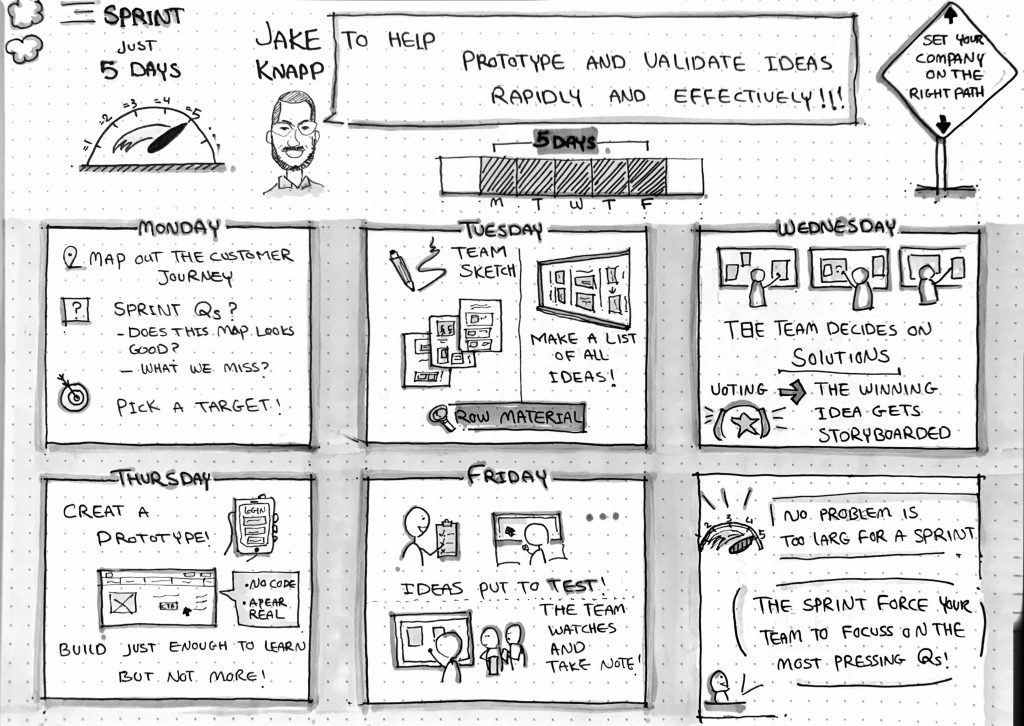 SPRINT
JUST
5 DAYS
=1 =2 =3 =4 =5
JAKE
KNAPP
TO HELP
PROTOTYPE AND VALIDATE IDEAS
RAPIDLY AND EFFECTIVELY!!!
SET YOUR
COMPANY
ON THE
RIGHT PATH
5 DAYS
M T W T F
MONDAY
MAP OUT THE CUSTOMER
JOURNEY
?
SPRINT Qs?
- DOES THIS MAP LOOKS
GOOD?
- WHAT WE MISS?
PICK A TARGET!
TUESDAY
TEAM
SKETCH
MAKE A LIST
OF ALL
IDEAS!
ROW MATERIAL
WEDNESDAY
THE TEAM DECIDES ON
SOLUTIONS
VOTING
THE WINNING
IDEA GETS
STORYBOARDED
THURSDAY
CREAT A
PROTOTYPE!
LOGIN
• NO CODE
• APEAR
REAL
BUILD JUST ENOUGH TO LEARN
BUT NOT MORE!
FRIDAY
IDEAS PUT TO TEST!
THE TEAM
WATCHES
AND
TAKE NOTE!
2 3 4 5
NO PROBLEM IS
TOO LARG FOR A SPRINT
THE SPRINT FORCE YOUR
TEAM TO FOCUSS ON THE
MOST PRESSING Qs!